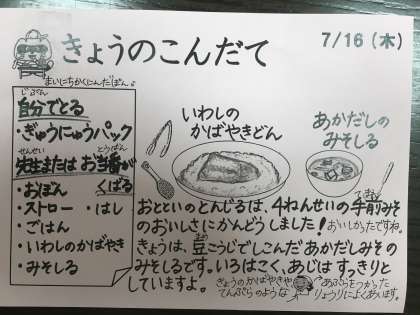 きょうのこんだて
7/16（木）
まいにちかくにんだぽん。
じぶん
自分でとる
・ぎゅうにゅうパック
せんせい とうばん
先生または お当番が
くばる
・おぼん
・ストロー ・はし
・ごはん
・いわしのかばやき
・みそしる
いわしの
かばやきどん
あかだしの
みそしる
おとといのとんじるは、4ねんせいの手前みそ
のおいしさにかんどうしました！おいしかったですね。
きょうは、豆こうじでしこんだあかだしみその
みそしるです。いろはこく、あじはすっきりと
していますよ。
きょうのかばやきや
てんぷらのような
あぶらをつかった
りょうりによくあいます。